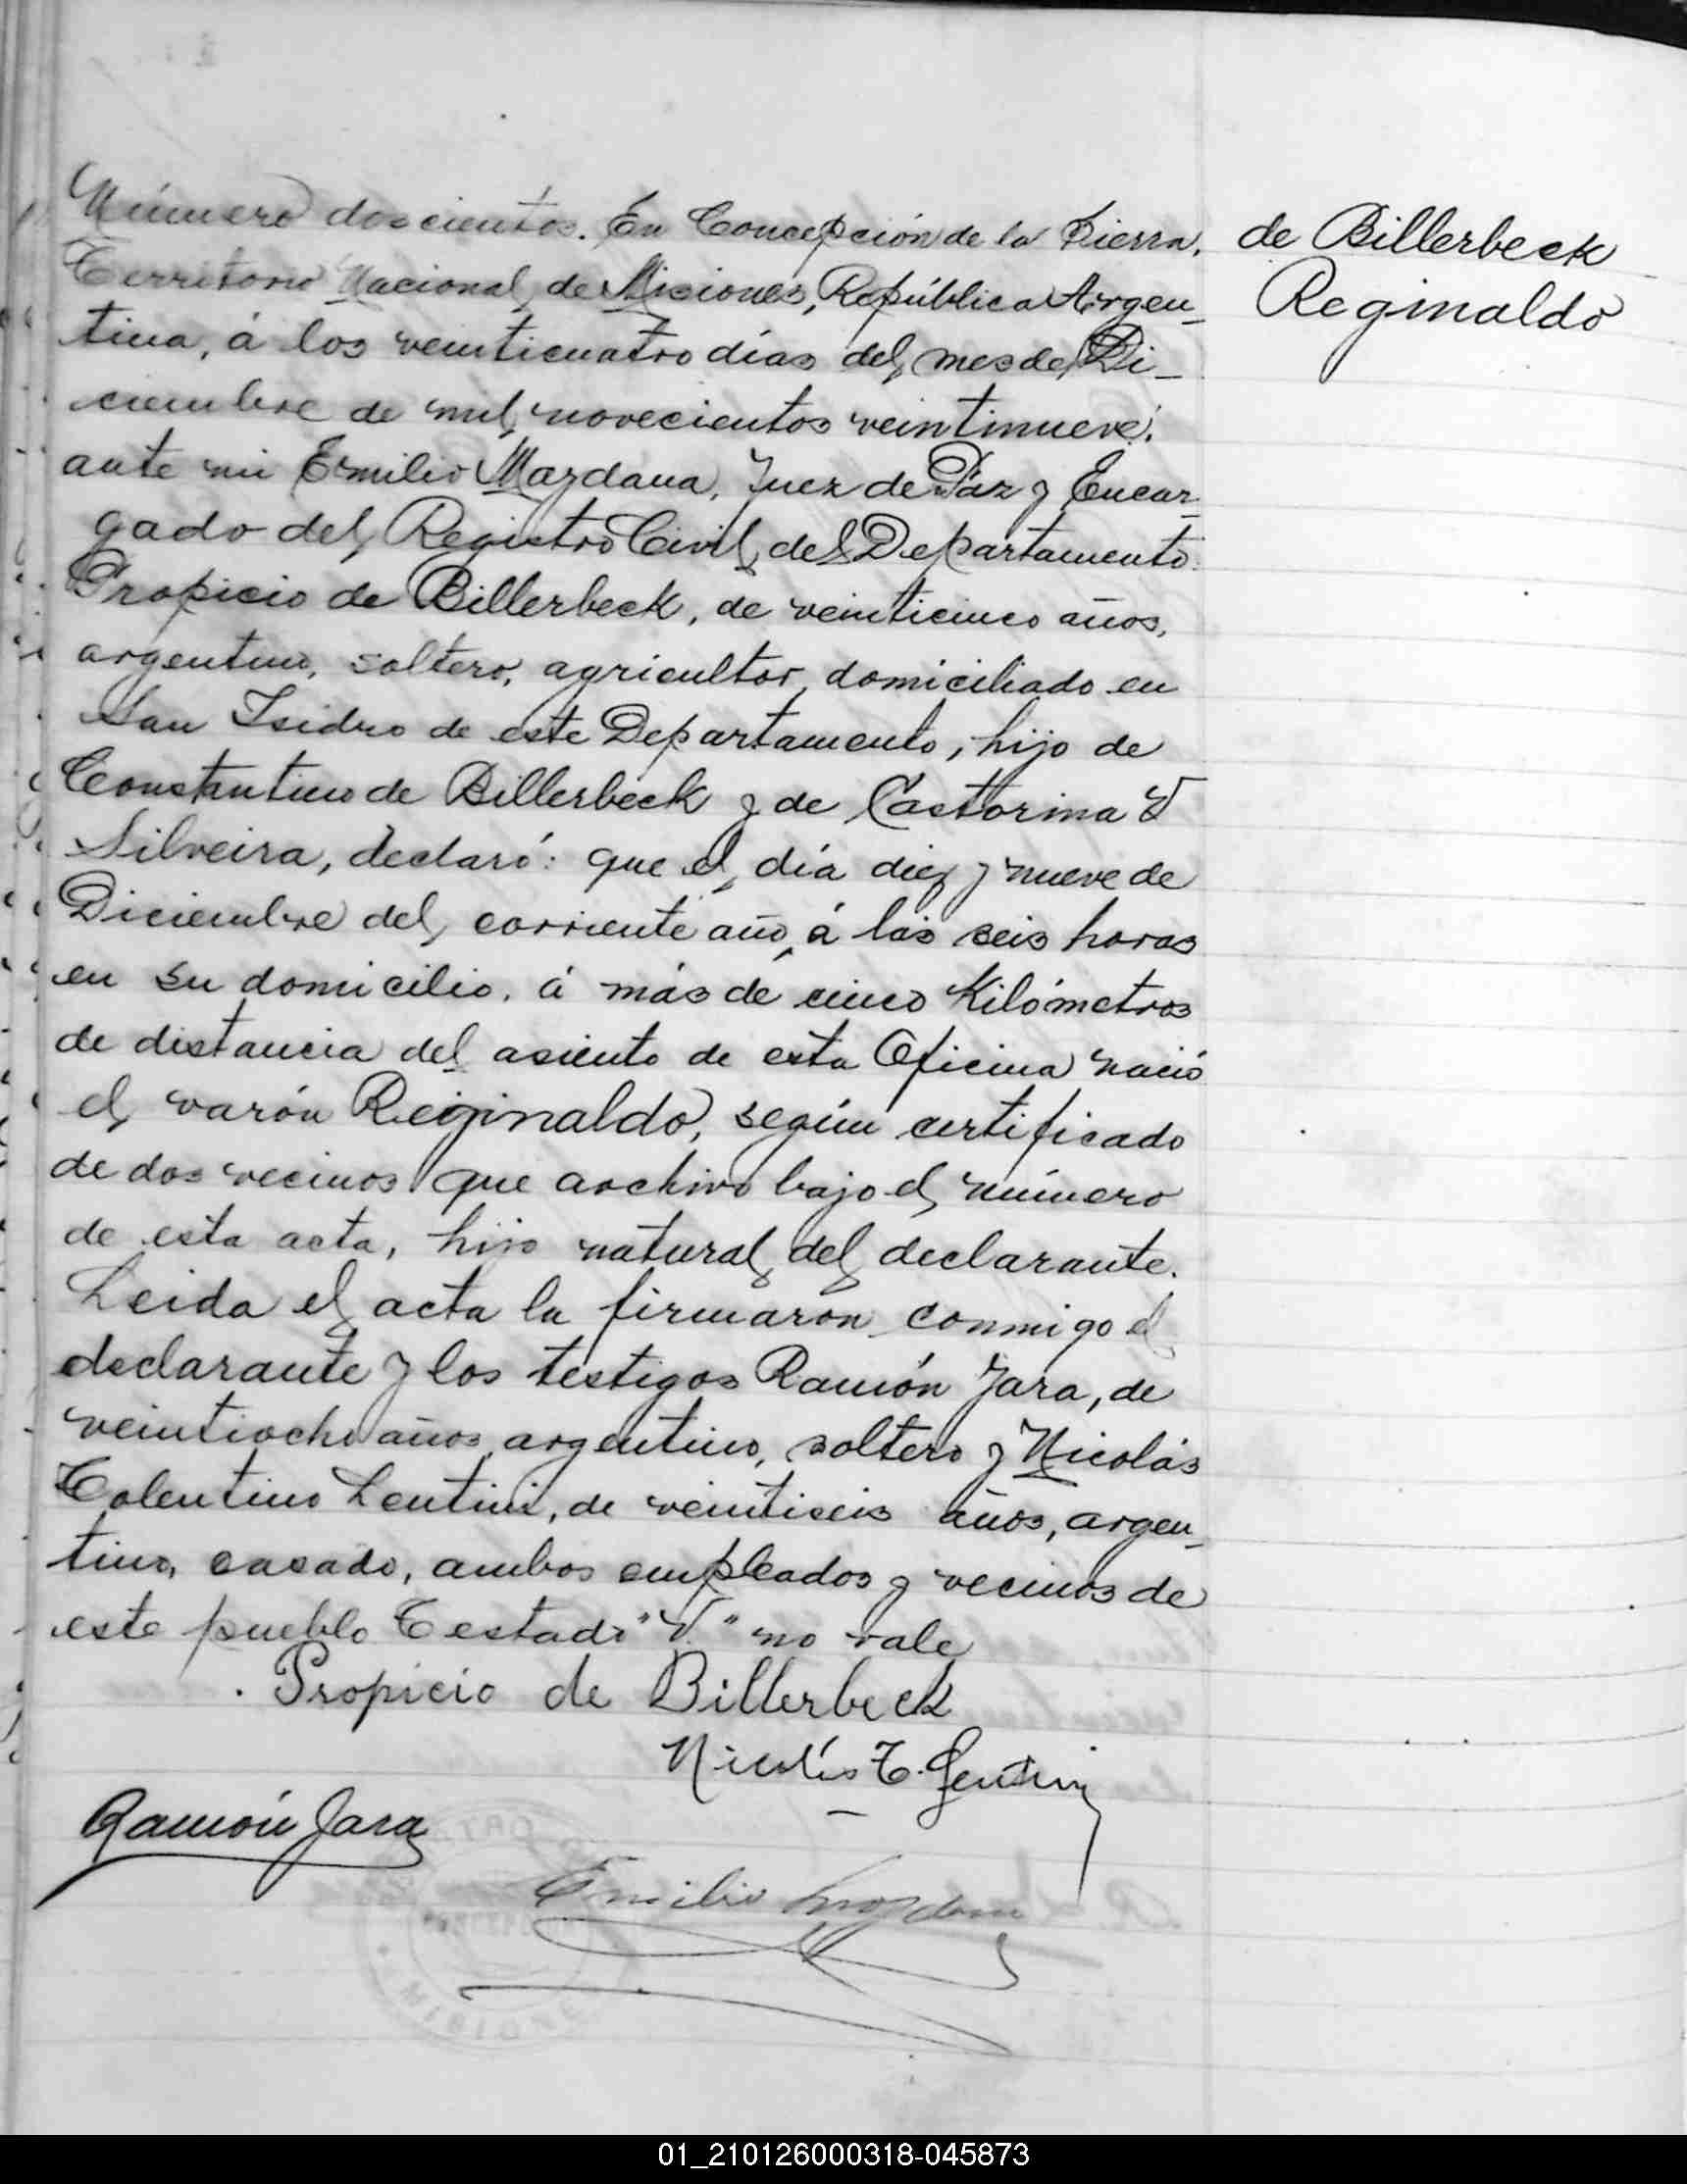 Número doscientos. En Concepción de la Sierra,
Territorio Nacional de Misiones, República Argen-
tina, á los veinticuatro días del mes de Di-
ciembre de mil novecientos veintinueve:
ante mi Emilio Mazdana, Juez de Paz y Encar-
gado del Registro Civil del Departamento:
Propicio de Billerbeck, de veinticinco años,
argentino, soltero, agricultor, domiciliado en
San Isidro de este Departamento, hijo de
Constantino de Billerbeck y de Castorina V
Silveira, declaró: que el día diez y nueve de
Diciembre del corriente año, á las seis horas
en su domicilio, á más de cinco Kilómetros
de distancia del asiento de esta Oficina nació
el varón Reginaldo, según certificado
de dos vecinos que archivo bajo el número
de esta acta, hijo natural del declarante.
Leida el acta la firmaron conmigo el
declarante y los testigos Ramón Jara, de
veintiocho años, argentino, soltero y Nicolás
Tolentino Lentini, de veintiseis años, argen-
tino, casado, ambos empleados y vecinos de
este pueblo Testado "V." no vale
Propicio de Billerbeck
Nicolás T. Lentini
Ramón Jara
Emilio Mazdana
MISIONES
de Billerbeck
Reginaldo
01_210126000318-045873